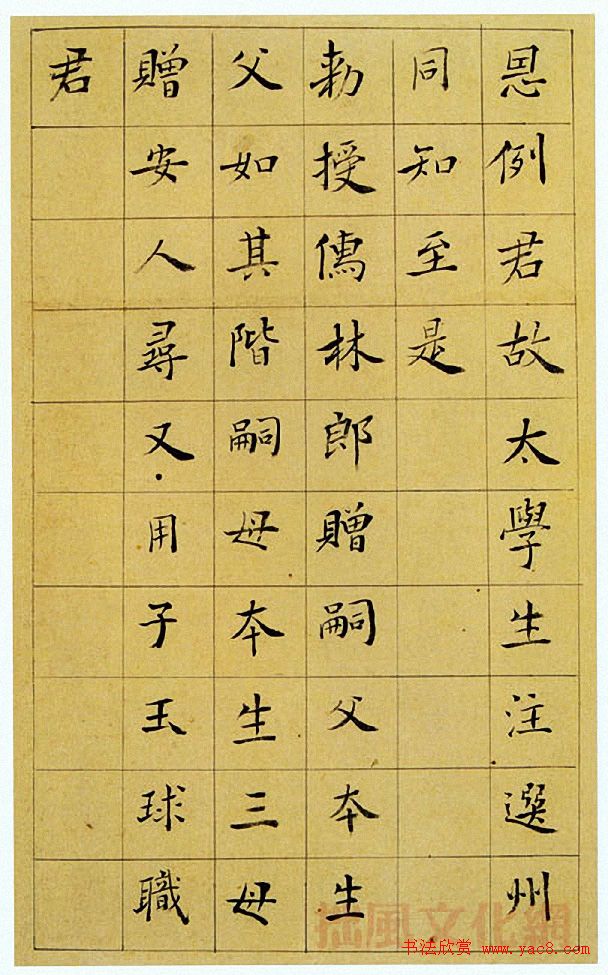 恩例君故太學生注選州
同知至是
勅授儒林郎贈嗣父本生
父如其階嗣母本生三母
贈安人尋又用子玉球職
君
书法欣赏 www.yac8.com